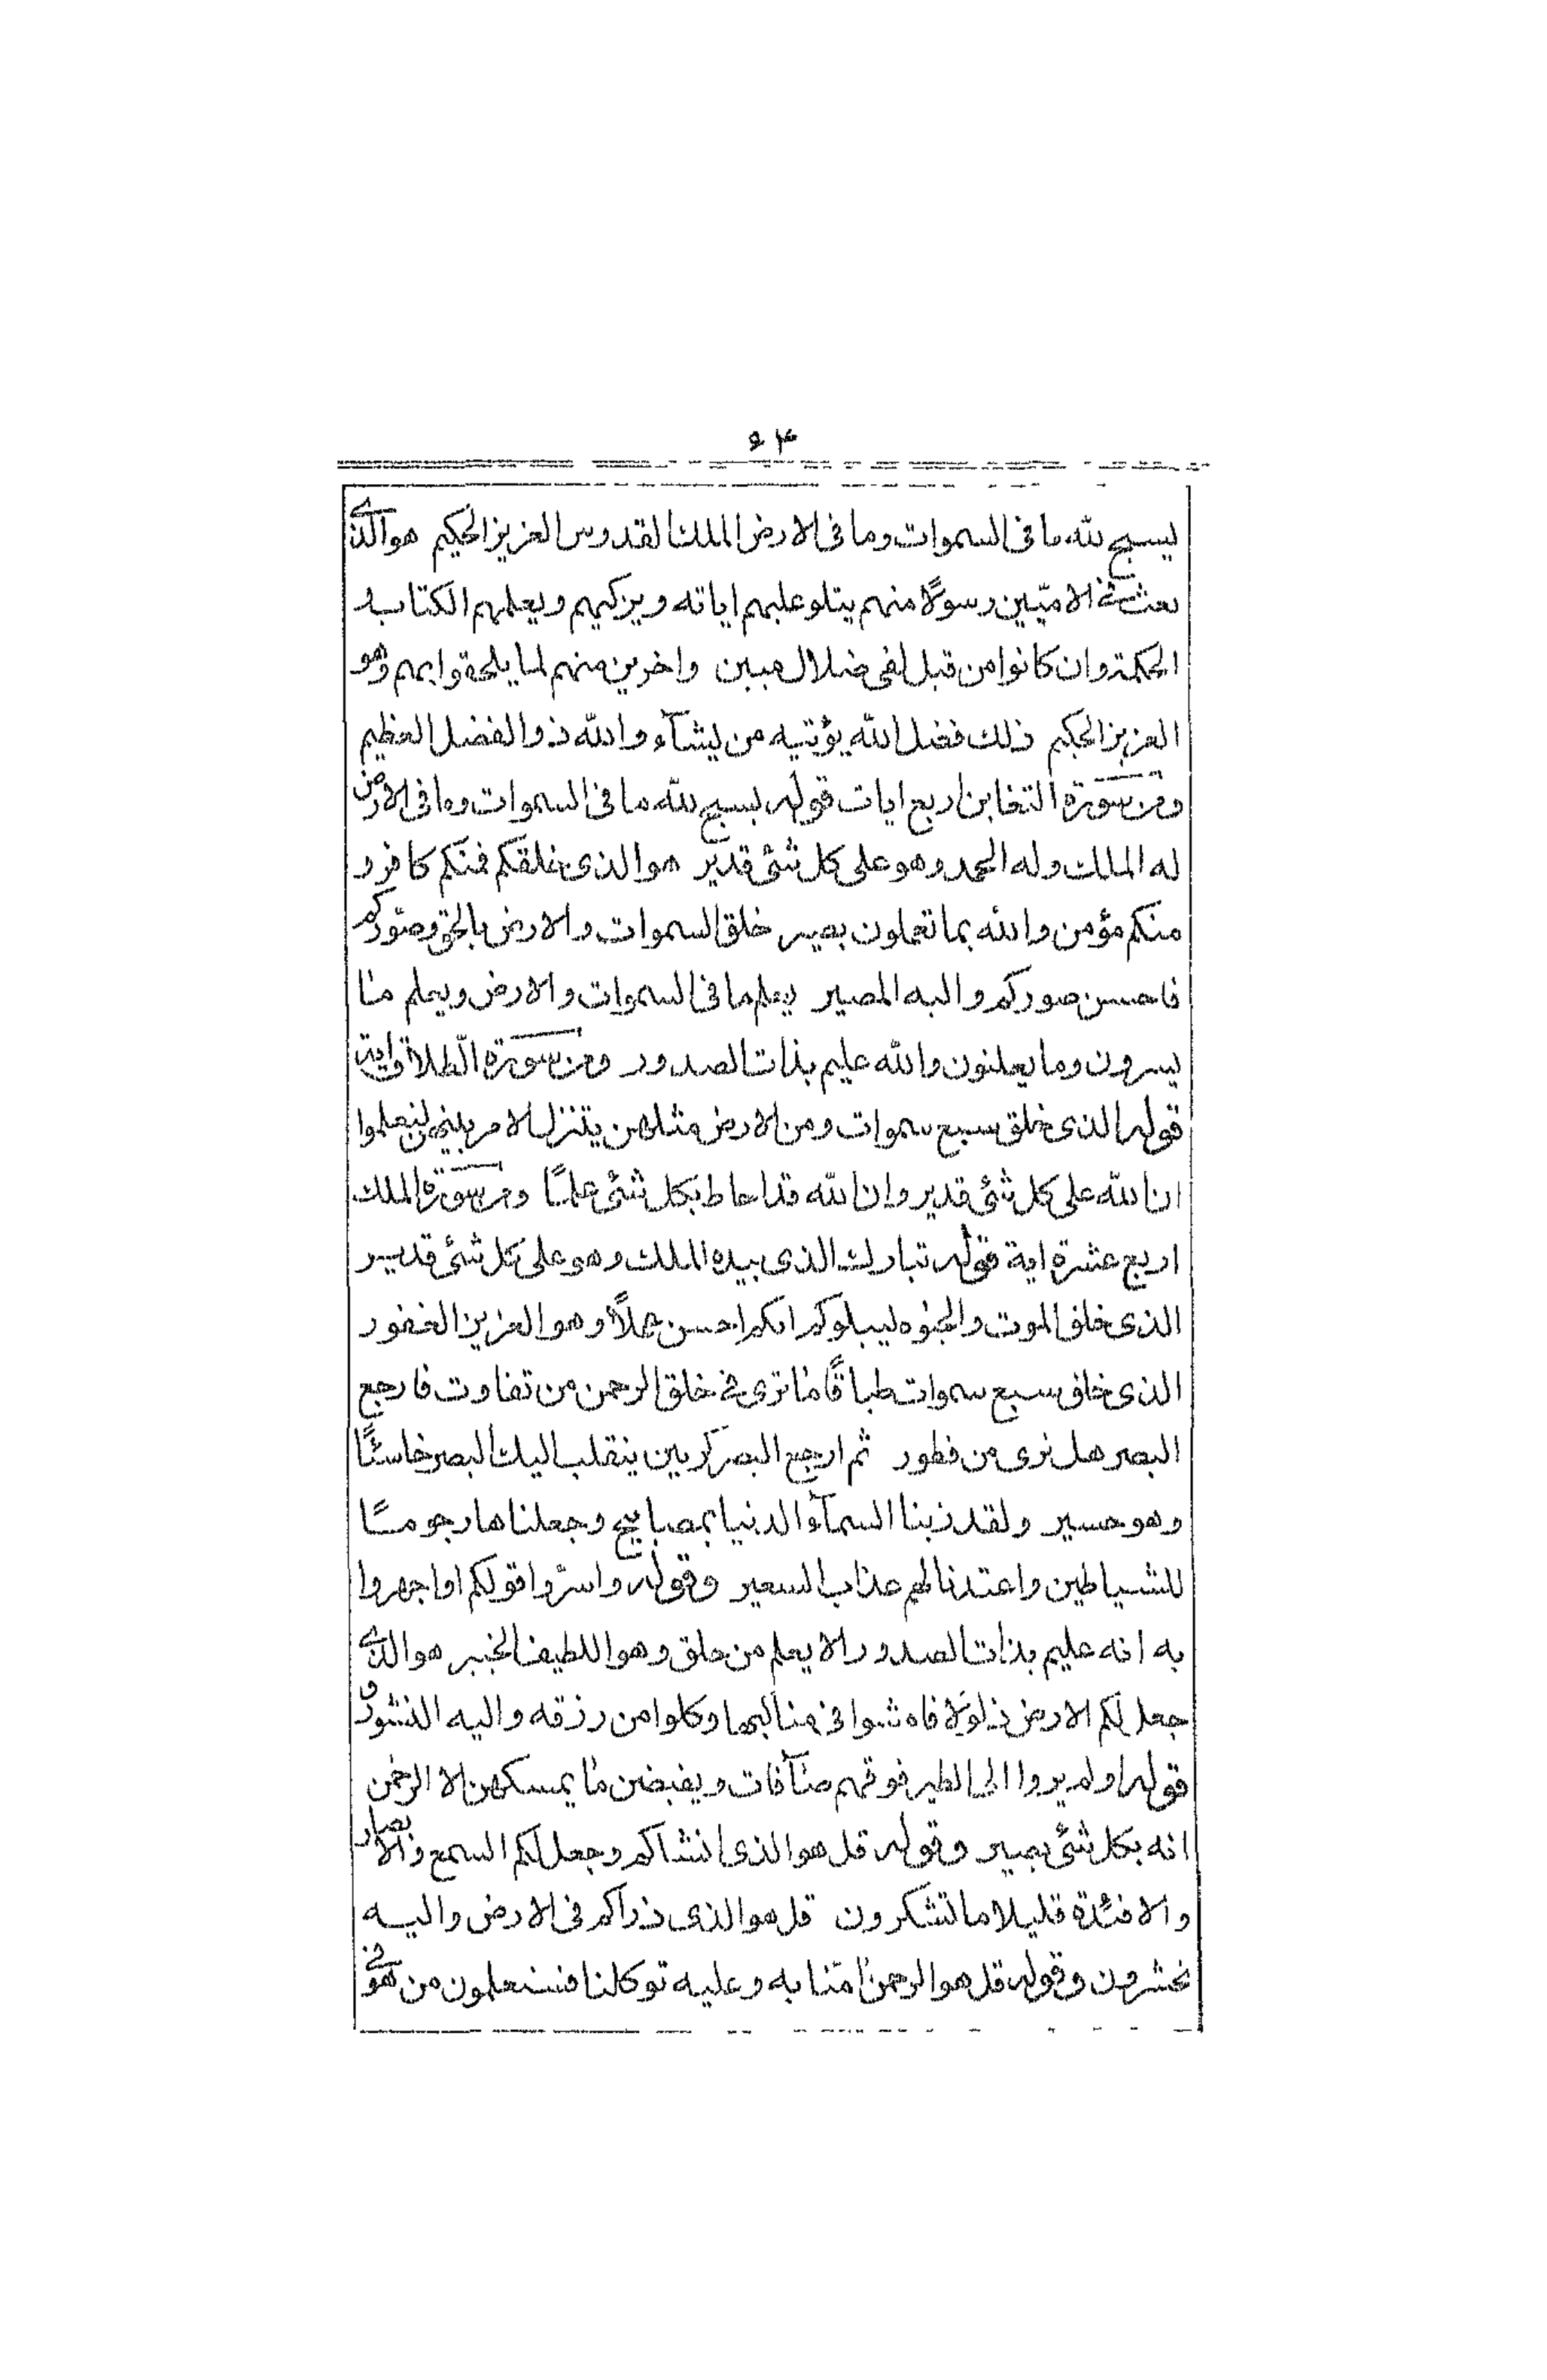 ۹۴
يسبح لله ما فى السموات وما فى الارض الملك القدوس العزيز الحكيم هو الذى
بعث فى الاميّين رسولًا منهم يتلو عليهم اياته ويزكيهم ويعلمهم الكتاب و
الحكمة وان كانوا من قبل لفى ضلال مبين واخرين منهم لما يلحقوا بهم وهو
العزيز الحكيم ذلك فضل الله يؤتيه من يشآء والله ذو الفضل العظيم
ومن سورة التغابن اربع ايات قوله يسبح لله ما فى السموات وما فى الارض
له الملك وله الحمد وهو على كل شئ قدير هو الذى خلقكم فمنكم كافر و
منكم مؤمن والله بما تعملون بصير خلق السموات والارض بالحق وصوّركم
فاحسن صوركم واليه المصير يعلم ما فى السموات والارض ويعلم ما
يسرون وما يعلنون والله عليم بذات الصدور ومن سورة الطلاق اية
قوله الذى خلق سبع سموات ومن الارض مثلهن يتنزل الامر بينهن لتعلموا
ان الله على كل شئ قدير وان الله قد احاط بكل شئ علمًا ومن سورة الملك
اربع عشرة اية قوله تبارك الذى بيده الملك وهو على كل شئ قدير
الذى خلق الموت والحيوة ليبلوكم ايكم احسن عملًا وهو العزيز الغفور
الذى خلق سبع سموات طباقًا ما ترى فى خلق الرحمن من تفاوت فارجع
البصر هل ترى من فطور ثم ارجع البصر كرتين ينقلب اليك البصر خاسئًا
وهو حسير ولقد زينا السمآء الدنيا بمصابيح وجعلناها رجومًا
للشياطين واعتدنا لهم عذاب السعير وقوله واسرّوا قولكم او اجهروا
به انه عليم بذات الصدور الا يعلم من خلق وهو اللطيف الخبير هو الذى
جعل لكم الارض ذلولًا فامشوا فى مناكبها وكلوا من رزقه واليه النشور و
قوله اولم يروا الى الطير فوقهم صآفات ويقبضن ما يمسكهن الا الرحمن
انه بكل شئ بصير وقوله قل هو الذى انشاكم وجعل لكم السمع والابصار
والافئدة قليلا ما تشكرون قل هو الذى ذراكم فى الارض واليه
تحشرون وقوله قل هو الرحمن امنّا به وعليه توكلنا فستعلمون من هو فى